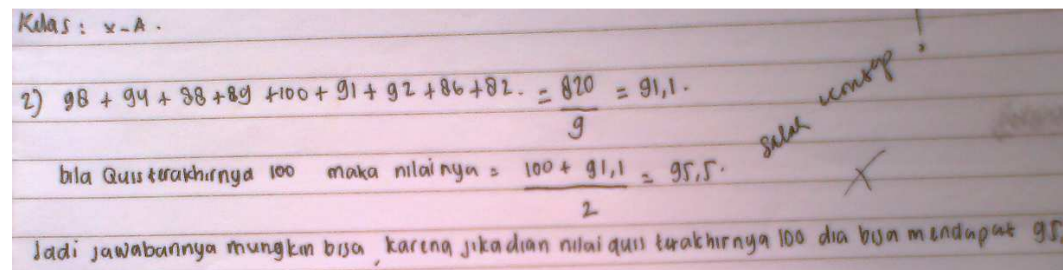 Kelas : X-A .
salah konsep !
2) 98 + 94 + 88 + 89 + 100 + 91 + 92 + 86 + 82. = 820/9 = 91,1.
bila Quis terakhirnya 100 maka nilainya = 100 + 91,1 / 2 = 95,5.
Jadi jawabannya mungkin bisa, karena jika dian nilai quis terakhirnya 100 dia bisa mendapat 95,